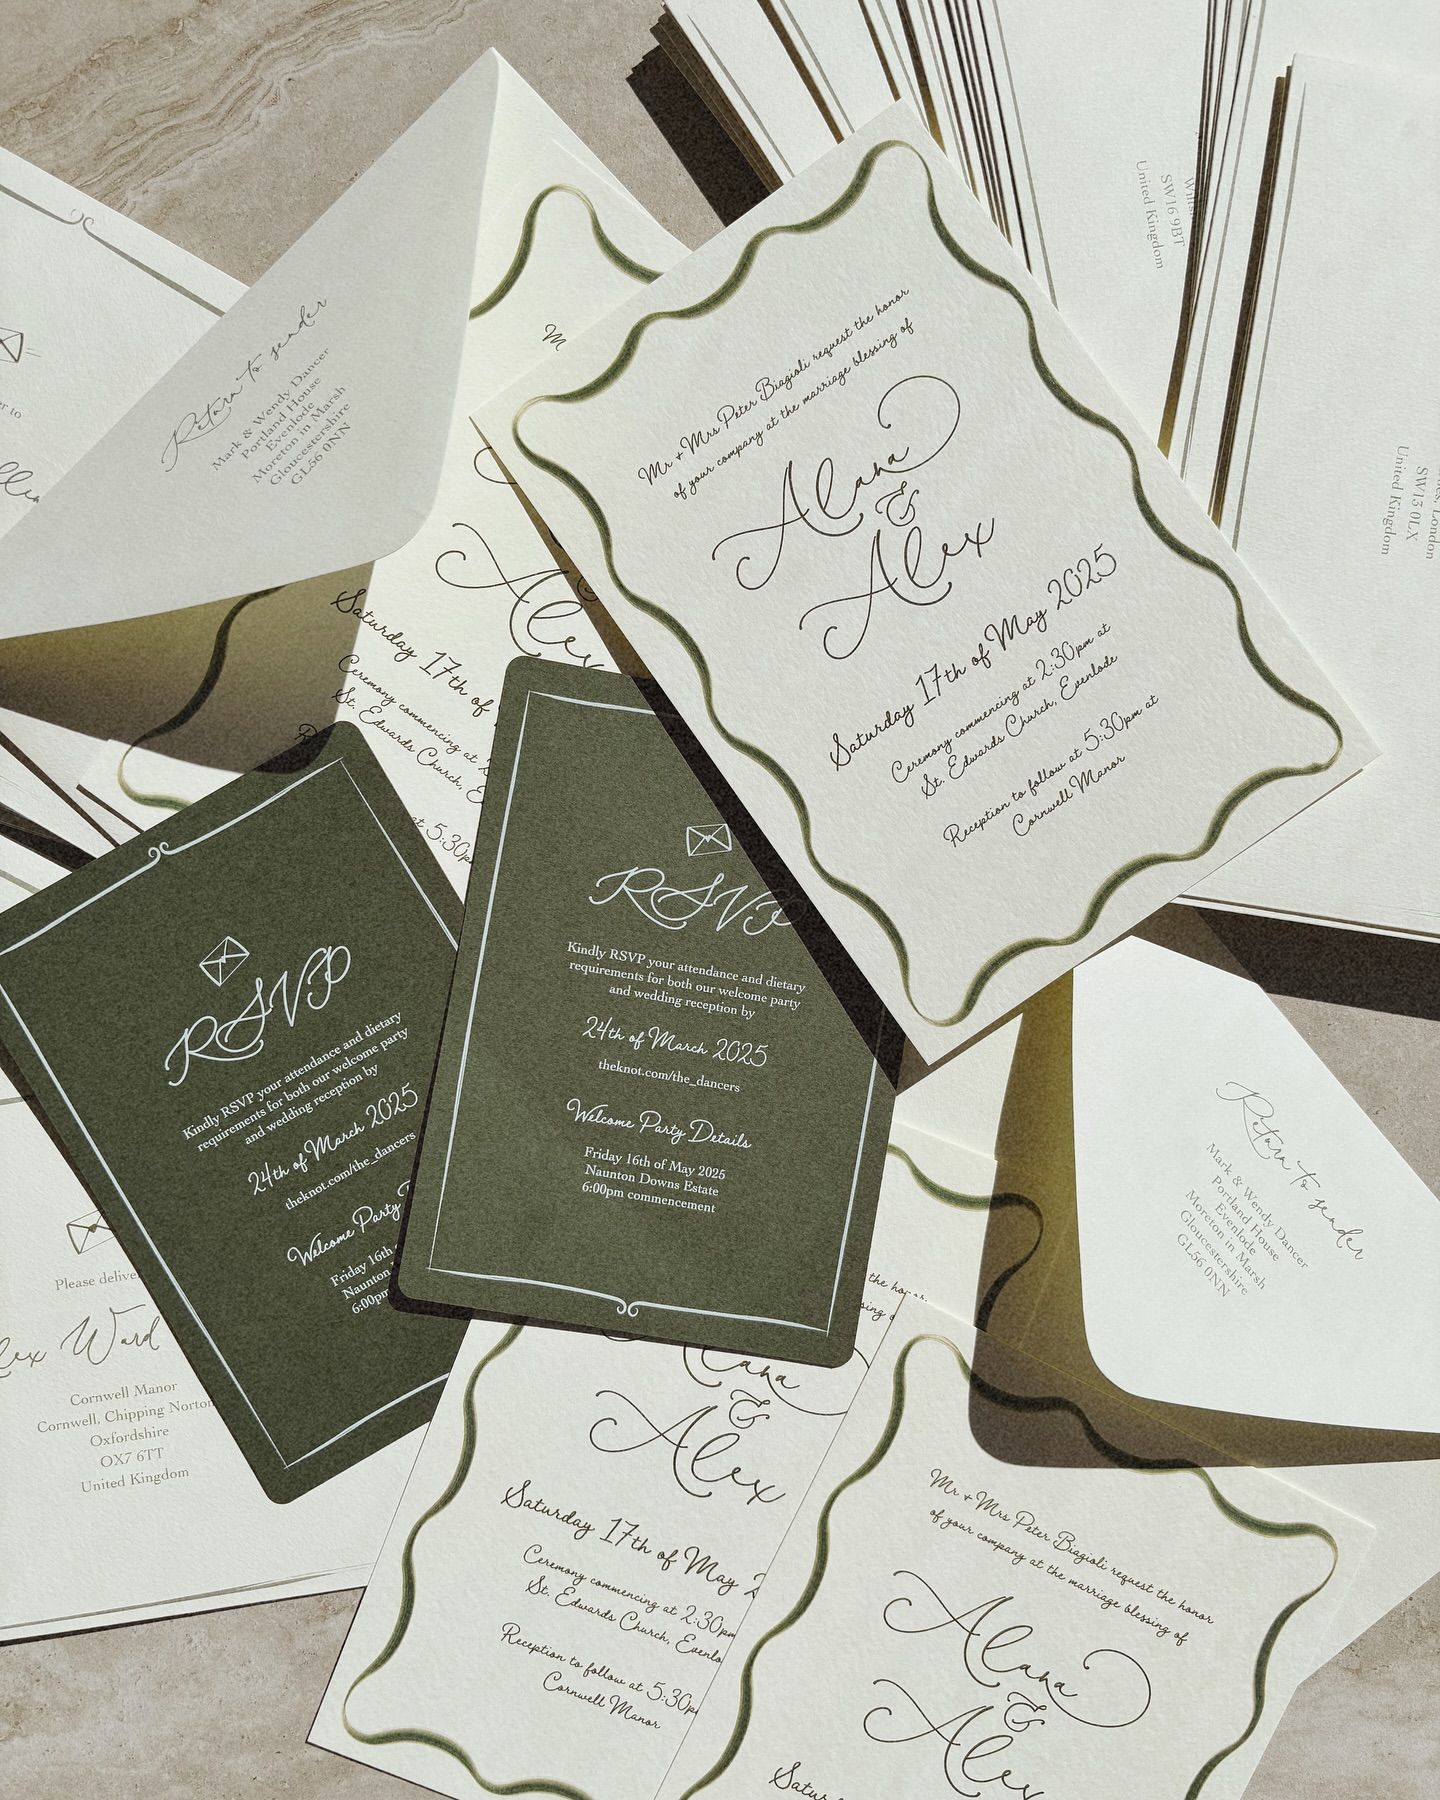 Return to sender
Mark & Wendy Dancer
Portland House
Evenlode
Moreton in Marsh
Gloucestershire
GL56 0NN
Mr + Mrs Peter Biagioli request the honor
of your company at the marriage blessing of
Alana
&
Alex
Saturday 17th of May 2025
Ceremony commencing at 2:30pm at
St. Edwards Church, Evenlode
Reception to follow at 5:30pm at
Cornwell Manor
SW16 9BT
United Kingdom
London
SW15 0LX
United Kingdom
M
Alex
Saturday 17th of
Ceremony commencing at
St. Edwards Church,
at 5:30p
RSVP
Kindly RSVP your attendance and dietary
requirements for both our welcome party
and wedding reception by
24th of March 2025
theknot.com/the_dancers
Welcome Party Details
Friday 16th of May 2025
Naunton Downs Estate
6:00pm commencement
RSVP
Kindly RSVP your attendance and dietary
requirements for both our welcome party
and wedding reception by
24th of March 2025
theknot.com/the_dancers
Welcome Party
Friday 16th
Naunton
6:00pm
Please deliver
Ward
Cornwell Manor
Cornwell, Chipping Norton
Oxfordshire
OX7 6TT
United Kingdom
Return to sender
Mark & Wendy Dancer
Portland House
Evenlode
Moreton in Marsh
Gloucestershire
GL56 0NN
the honor
&
Alex
Saturday 17th of May
Ceremony commencing at 2:30pm
St. Edwards Church,
Reception to follow at 5:30p
Cornwell Manor
Mr + Mrs Peter Biagioli request the honor
of your company at the marriage blessing of
Alana
&
Alex